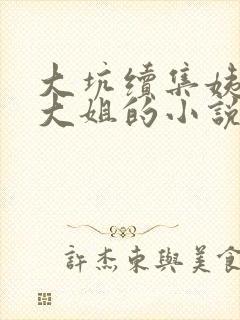 大坑續集姊
大姐的小說
許杰東與美食